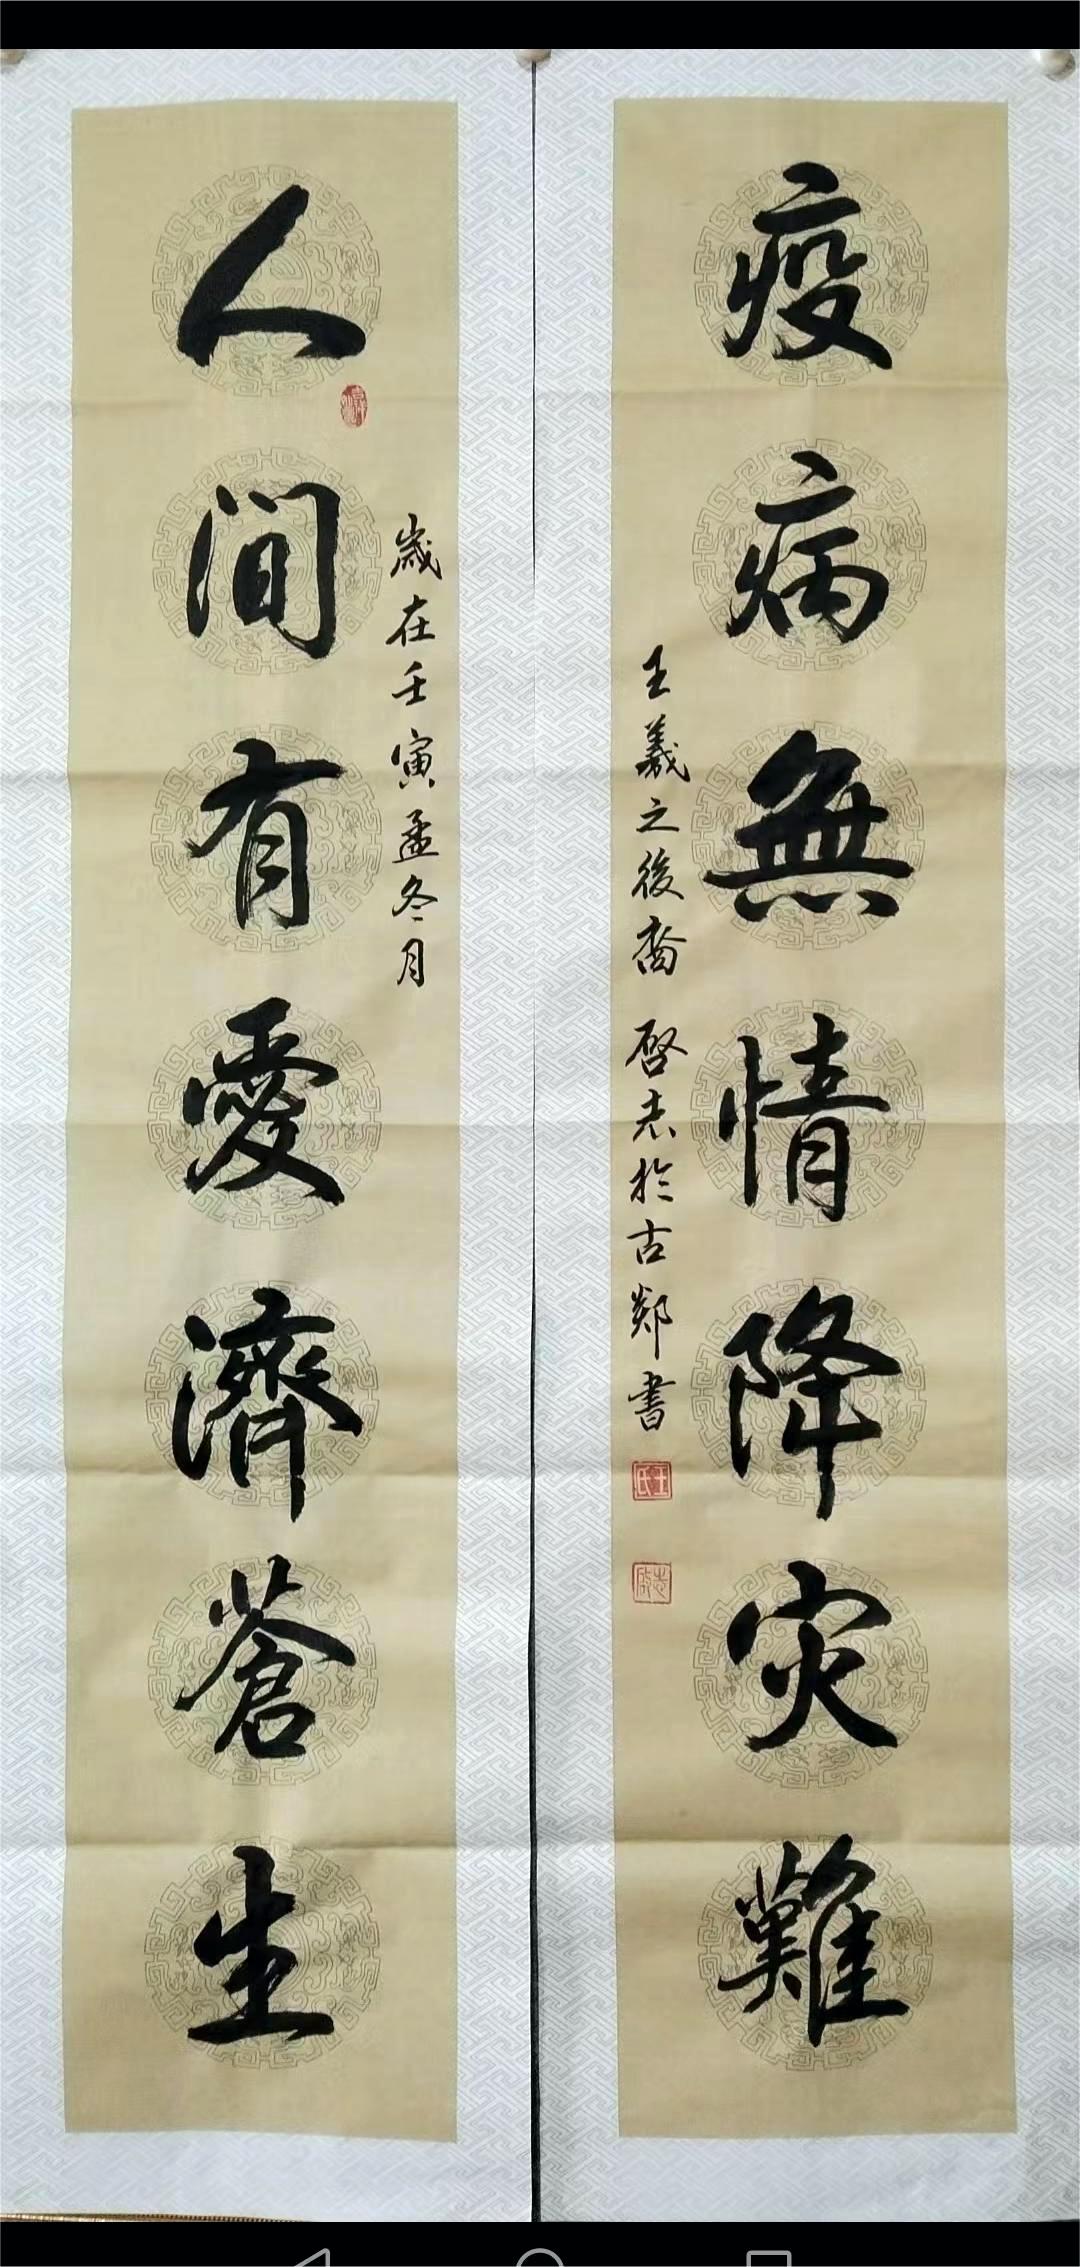 疫病無情降灾難
王羲之後裔 啓志於古郯書
王氏
歲在壬寅孟冬月
人間有愛濟蒼生